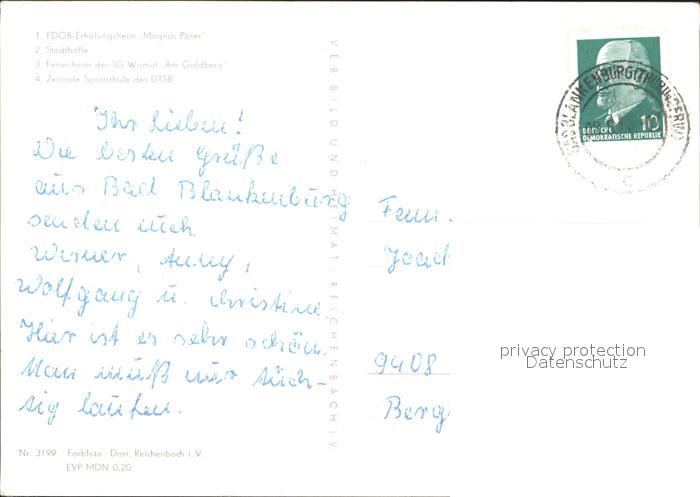 1. FDGB-Erholungsheim „Magnus Poser"
2. Stadthalle
3. Ferienheim der IG Wismut „Am Goldberg"
4. Zentrale Sportschule des DTSB
Ihr Lieben!
Die besten Grüße
aus Bad Blankenburg
senden euch
Werner, Anny,
Wolfgang u. Christine.
Hier ist es sehr schön.
Man muß nur tüch-
tig laufen.
Nr. 3199 Farbfoto: Darr, Reichenbach i. V.
EVP MDN 0,20
VEB BILD UND HEIMAT · REICHENBACH i. V.
BAD BLANKENBURG (THÜRINGERW)
c
10
DEUTSCHE
DEMOKRATISCHE REPUBLIK
Fam.
Joach
9408
Berg
privacy protection
Datenschutz